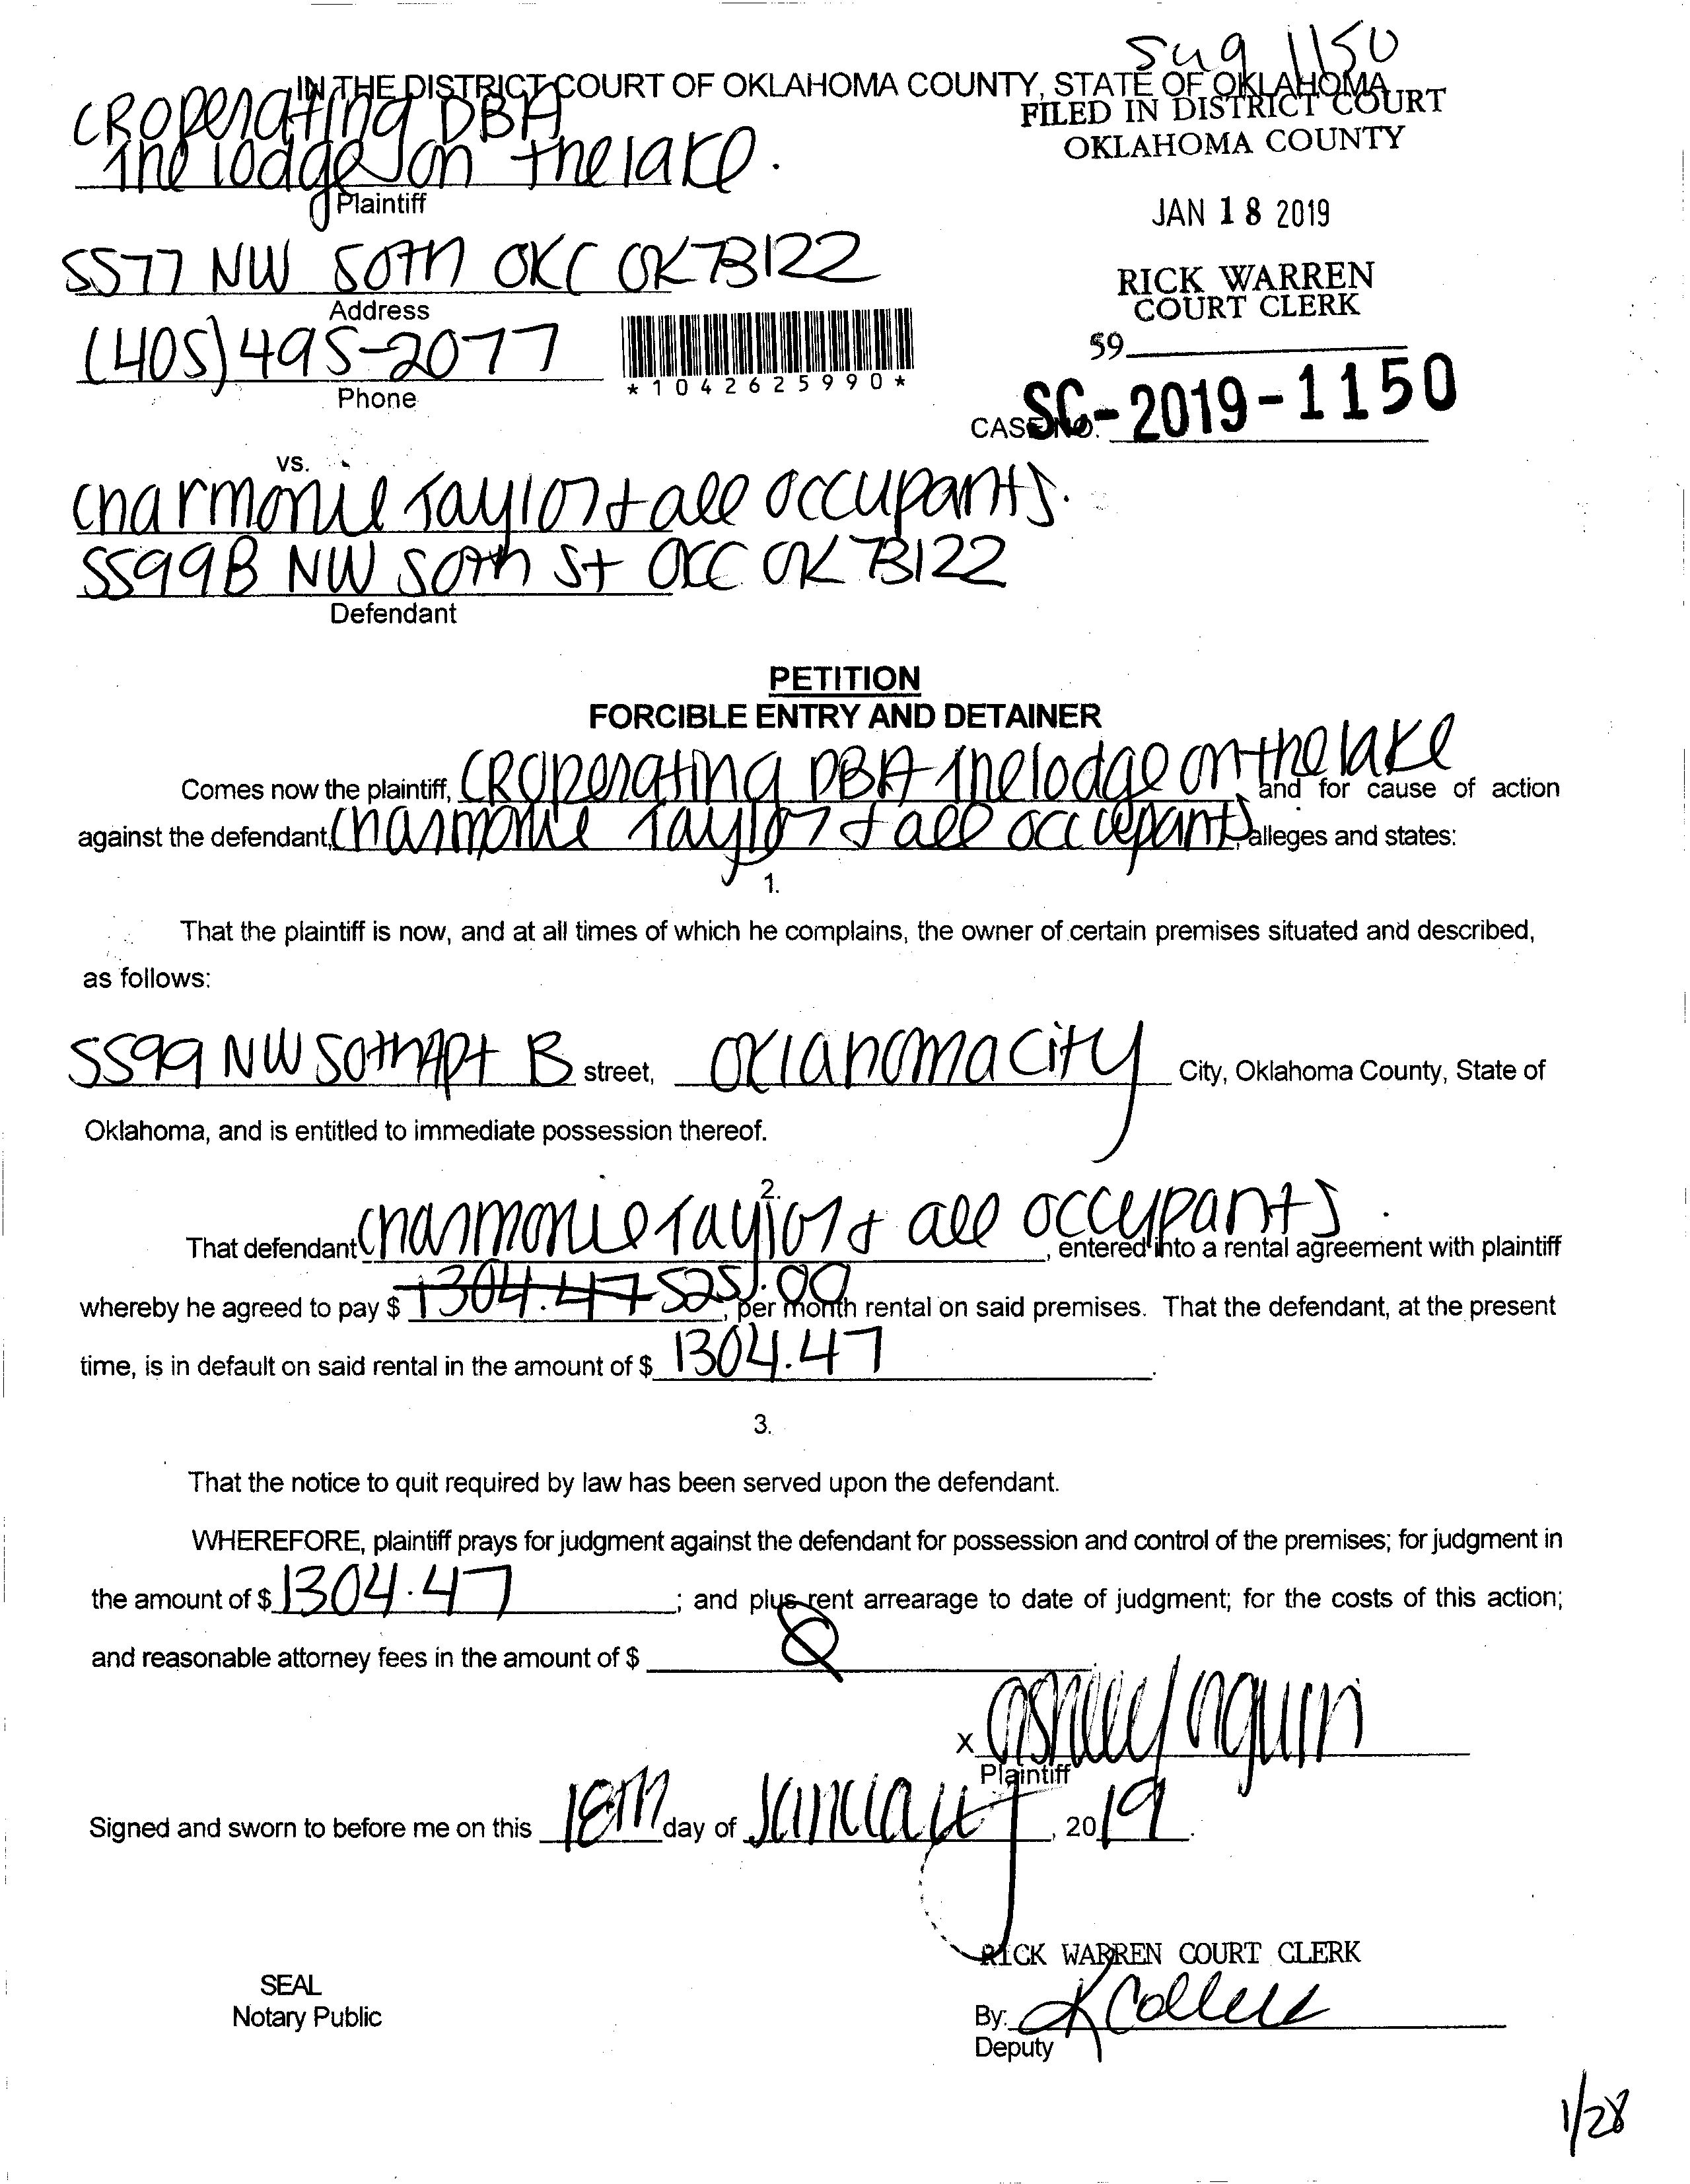 1150
IN THE DISTRICT COURT OF OKLAHOMA COUNTY, STATE OF OKLAHOMA
CROperating DBA
The lodge on the lake.
Plaintiff
FILED IN DISTRICT COURT
OKLAHOMA COUNTY
JAN 18 2019
RICK WARREN
COURT CLERK
59
5577 NW 50th OKC OK 73122
Address
(405) 495-2077
Phone
*1042625990*
CASE NO. SC-2019-1150
vs.
Charmonie Taylor + all occupants.
5599B NW 50th St OKC OK 73122
Defendant
PETITION
FORCIBLE ENTRY AND DETAINER
Comes now the plaintiff, CROperating DBA The lodge on the lake and for cause of action
against the defendant, Charmonie Taylor + all occupants, alleges and states:
1.
That the plaintiff is now, and at all times of which he complains, the owner of certain premises situated and described,
as follows:
5599 NW 50th Apt B street, Oklahoma City City, Oklahoma County, State of
Oklahoma, and is entitled to immediate possession thereof.
2.
That defendant Charmonie Taylor + all occupants, entered into a rental agreement with plaintiff
whereby he agreed to pay $ 1304.47 525.00, per month rental on said premises. That the defendant, at the present
time, is in default on said rental in the amount of $ 1304.47.
3.
That the notice to quit required by law has been served upon the defendant.
WHEREFORE, plaintiff prays for judgment against the defendant for possession and control of the premises; for judgment in
the amount of $ 1304.47; and plus rent arrearage to date of judgment; for the costs of this action;
and reasonable attorney fees in the amount of $
x Ashley
Plaintiff
Signed and sworn to before me on this 18th day of January, 2019.
RICK WARREN COURT CLERK
SEAL
Notary Public
By:
Deputy
1/28